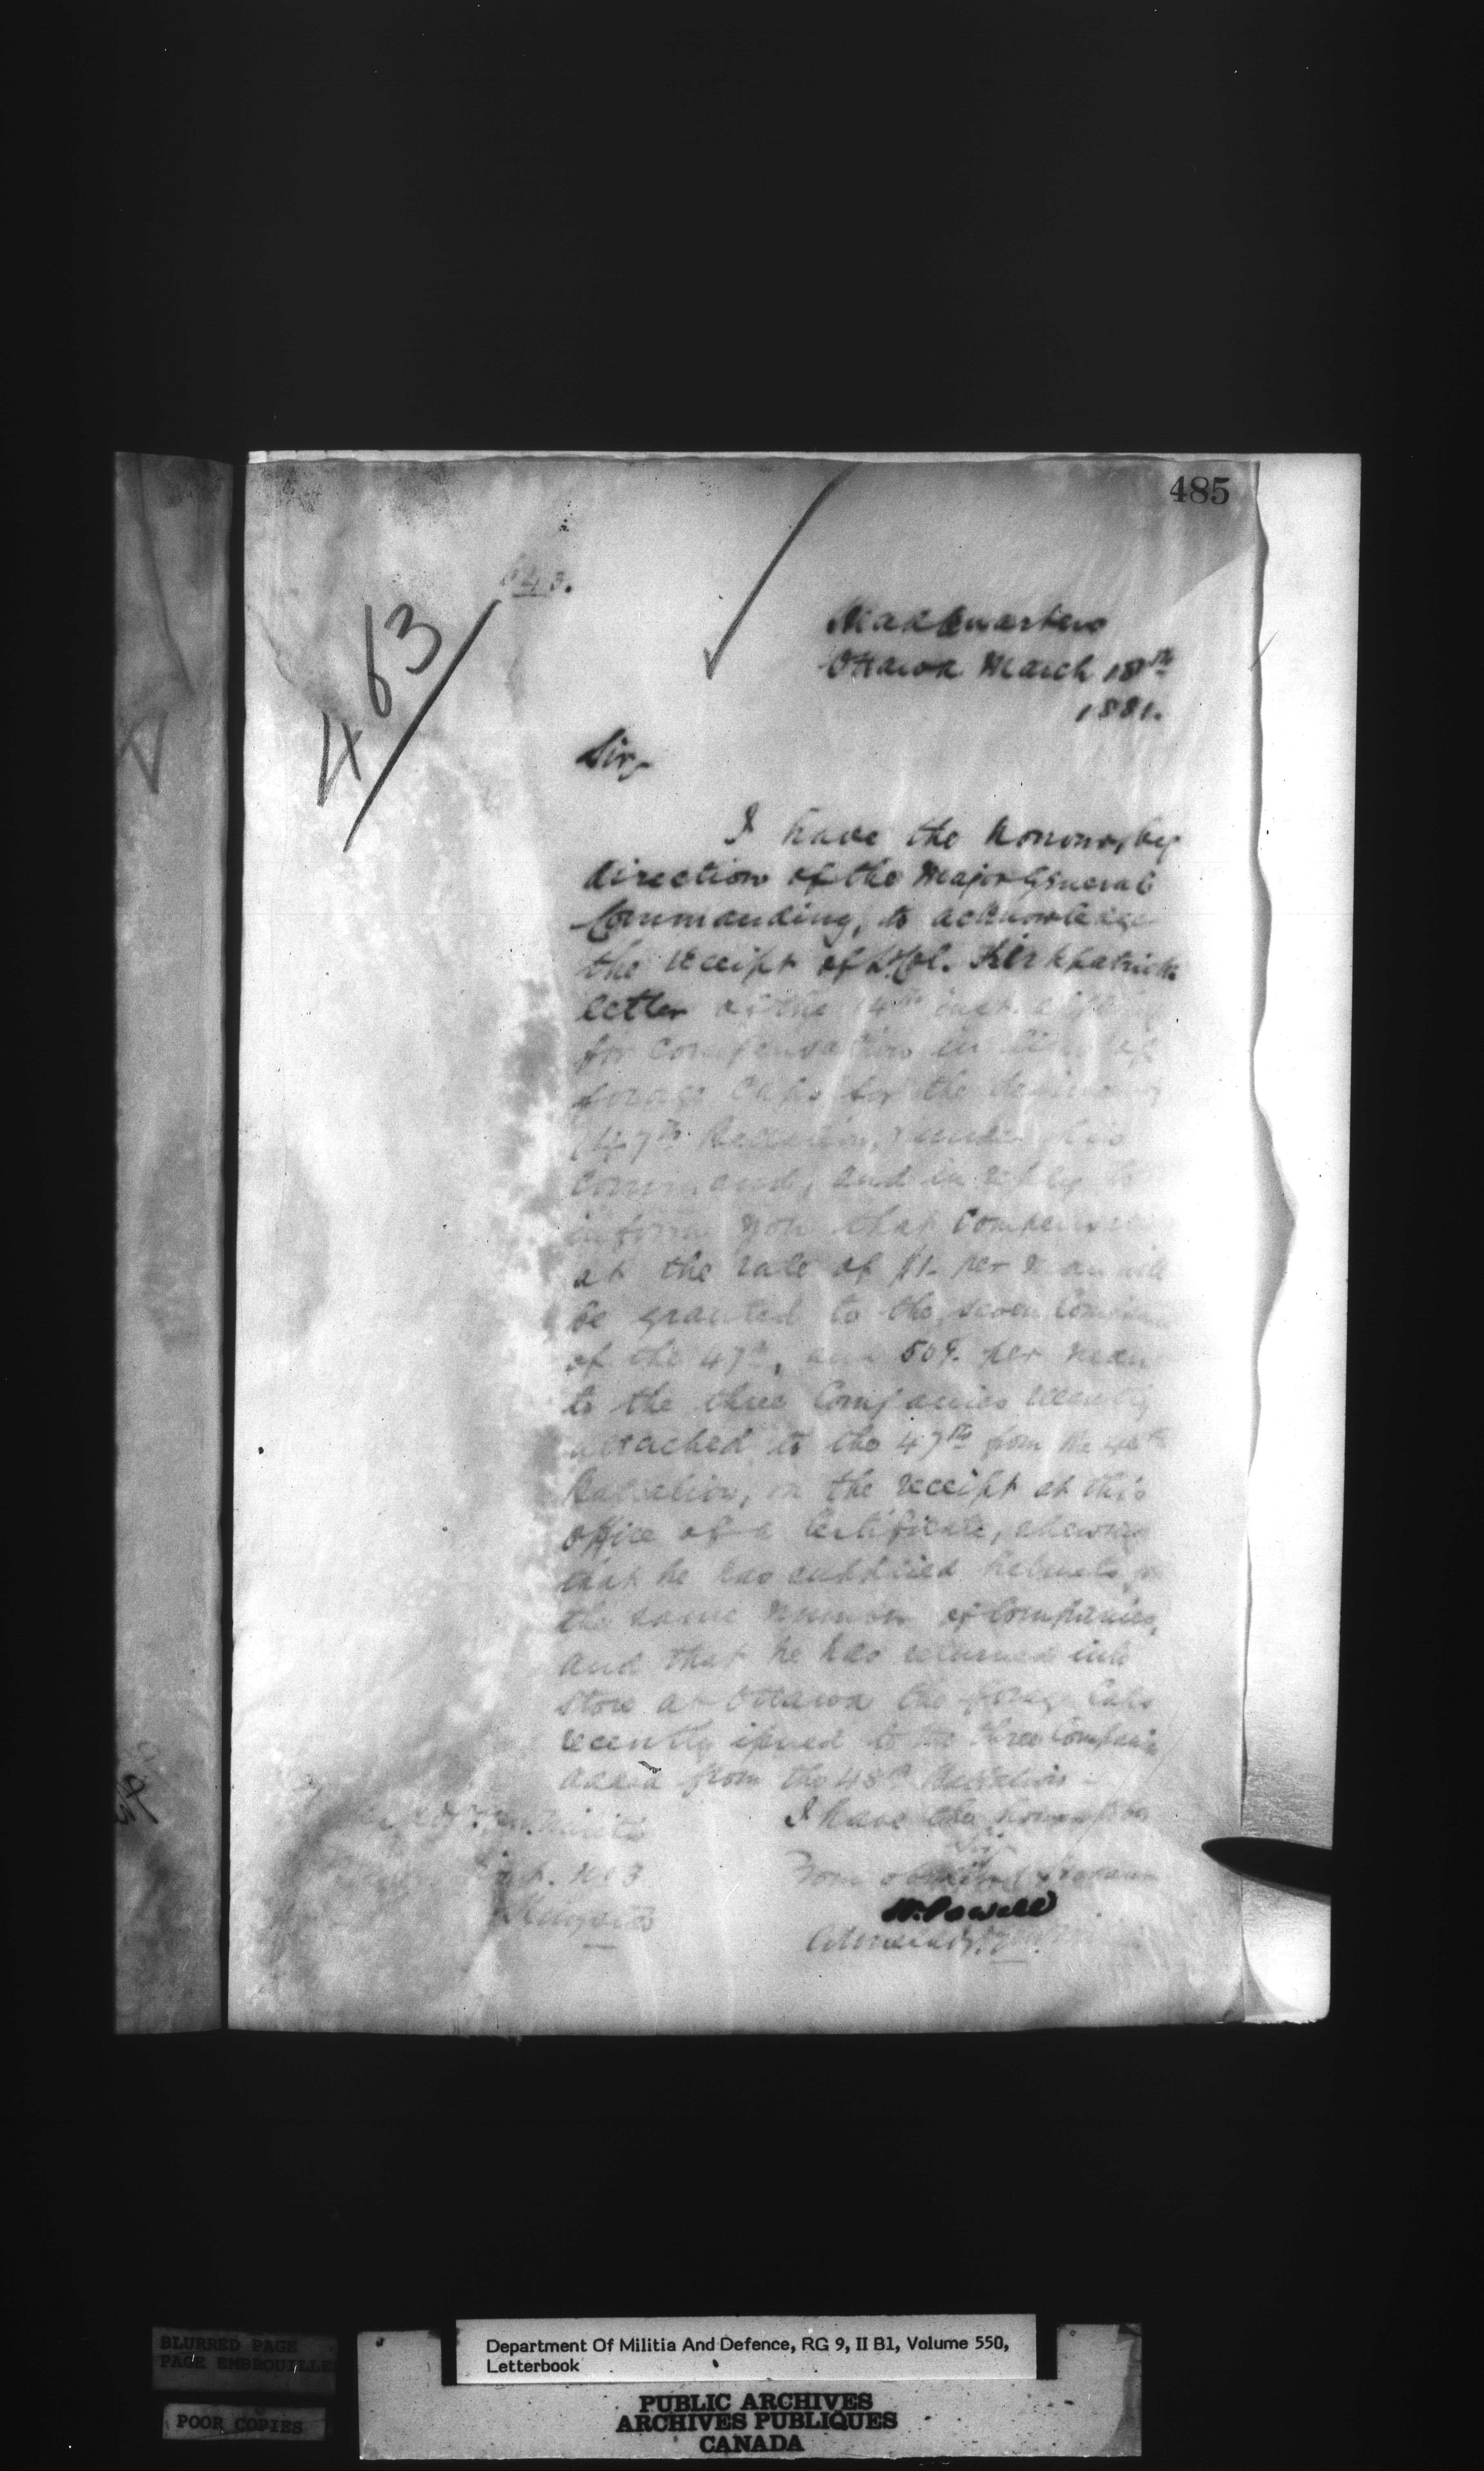 485
463
Head Quarters
Ottawa March 18th
1881.
Sir,
I have the honour, by
direction of the Major General
Commanding, to acknowledge
the receipt of Lt Col. Kirkpatrick
letter of the 14th inst.
for compensation in lieu of
forage Caps for the
47th Battalion, under his
command, and in reply to
inform you that compensation
at the rate of $1. per man will
be granted to the seven Companies
of the 47th, and 50¢. per man
to the three Companies recently
attached to the 47th from the 48th
Battalion, on the receipt at this
office of a Certificate, shewing
that he has supplied helmets for
the same number of Companies,
and that he has returned into
store at Ottawa the forage Caps
recently issued to the three Companies
added from the 48th Battalion -
I have the honour to be
Sir
Your obedient Servant
W. Powell
Adjutant Genl.
No. 3
Kingston
BLURRED PAGE
PAGE EMBROUILLEE
POOR COPIES
Department Of Militia And Defence, RG 9, II B1, Volume 550,
Letterbook
PUBLIC ARCHIVES
ARCHIVES PUBLIQUES
CANADA